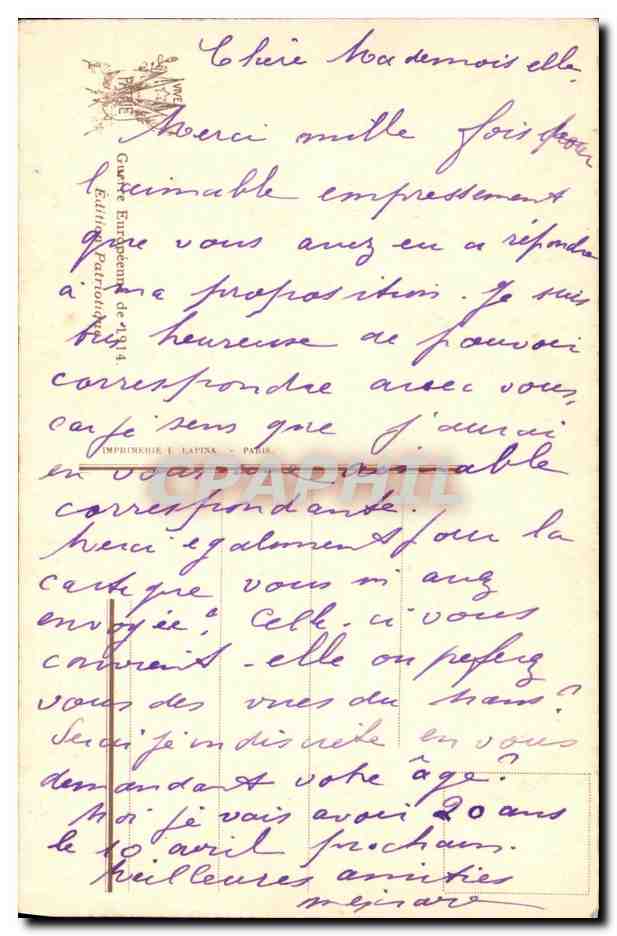 Chère Mademoiselle.
Merci mille fois pour
l'aimable empressement
que vous avez eu a répondre
à ma proposition. Je suis
très heureuse de pouvoir
correspondre avec vous,
car je sens que j'aurai
en vous une aimable
correspondante.
Merci également pour la
carte que vous m'avez
envoyée. Celle-ci vous
convient-elle ou preferez
vous des vues du Mans?
Serai je indiscrète en vous
demandant votre âge?
Moi je vais avoir 20 ans
le 10 avril prochain.
Meilleures amitiés
VIVE LA PATRIE
Guerre Européenne de 1914.
Édition Patriotique
IMPRIMERIE I. LAPINA. - PARIS.
CPAPHIL